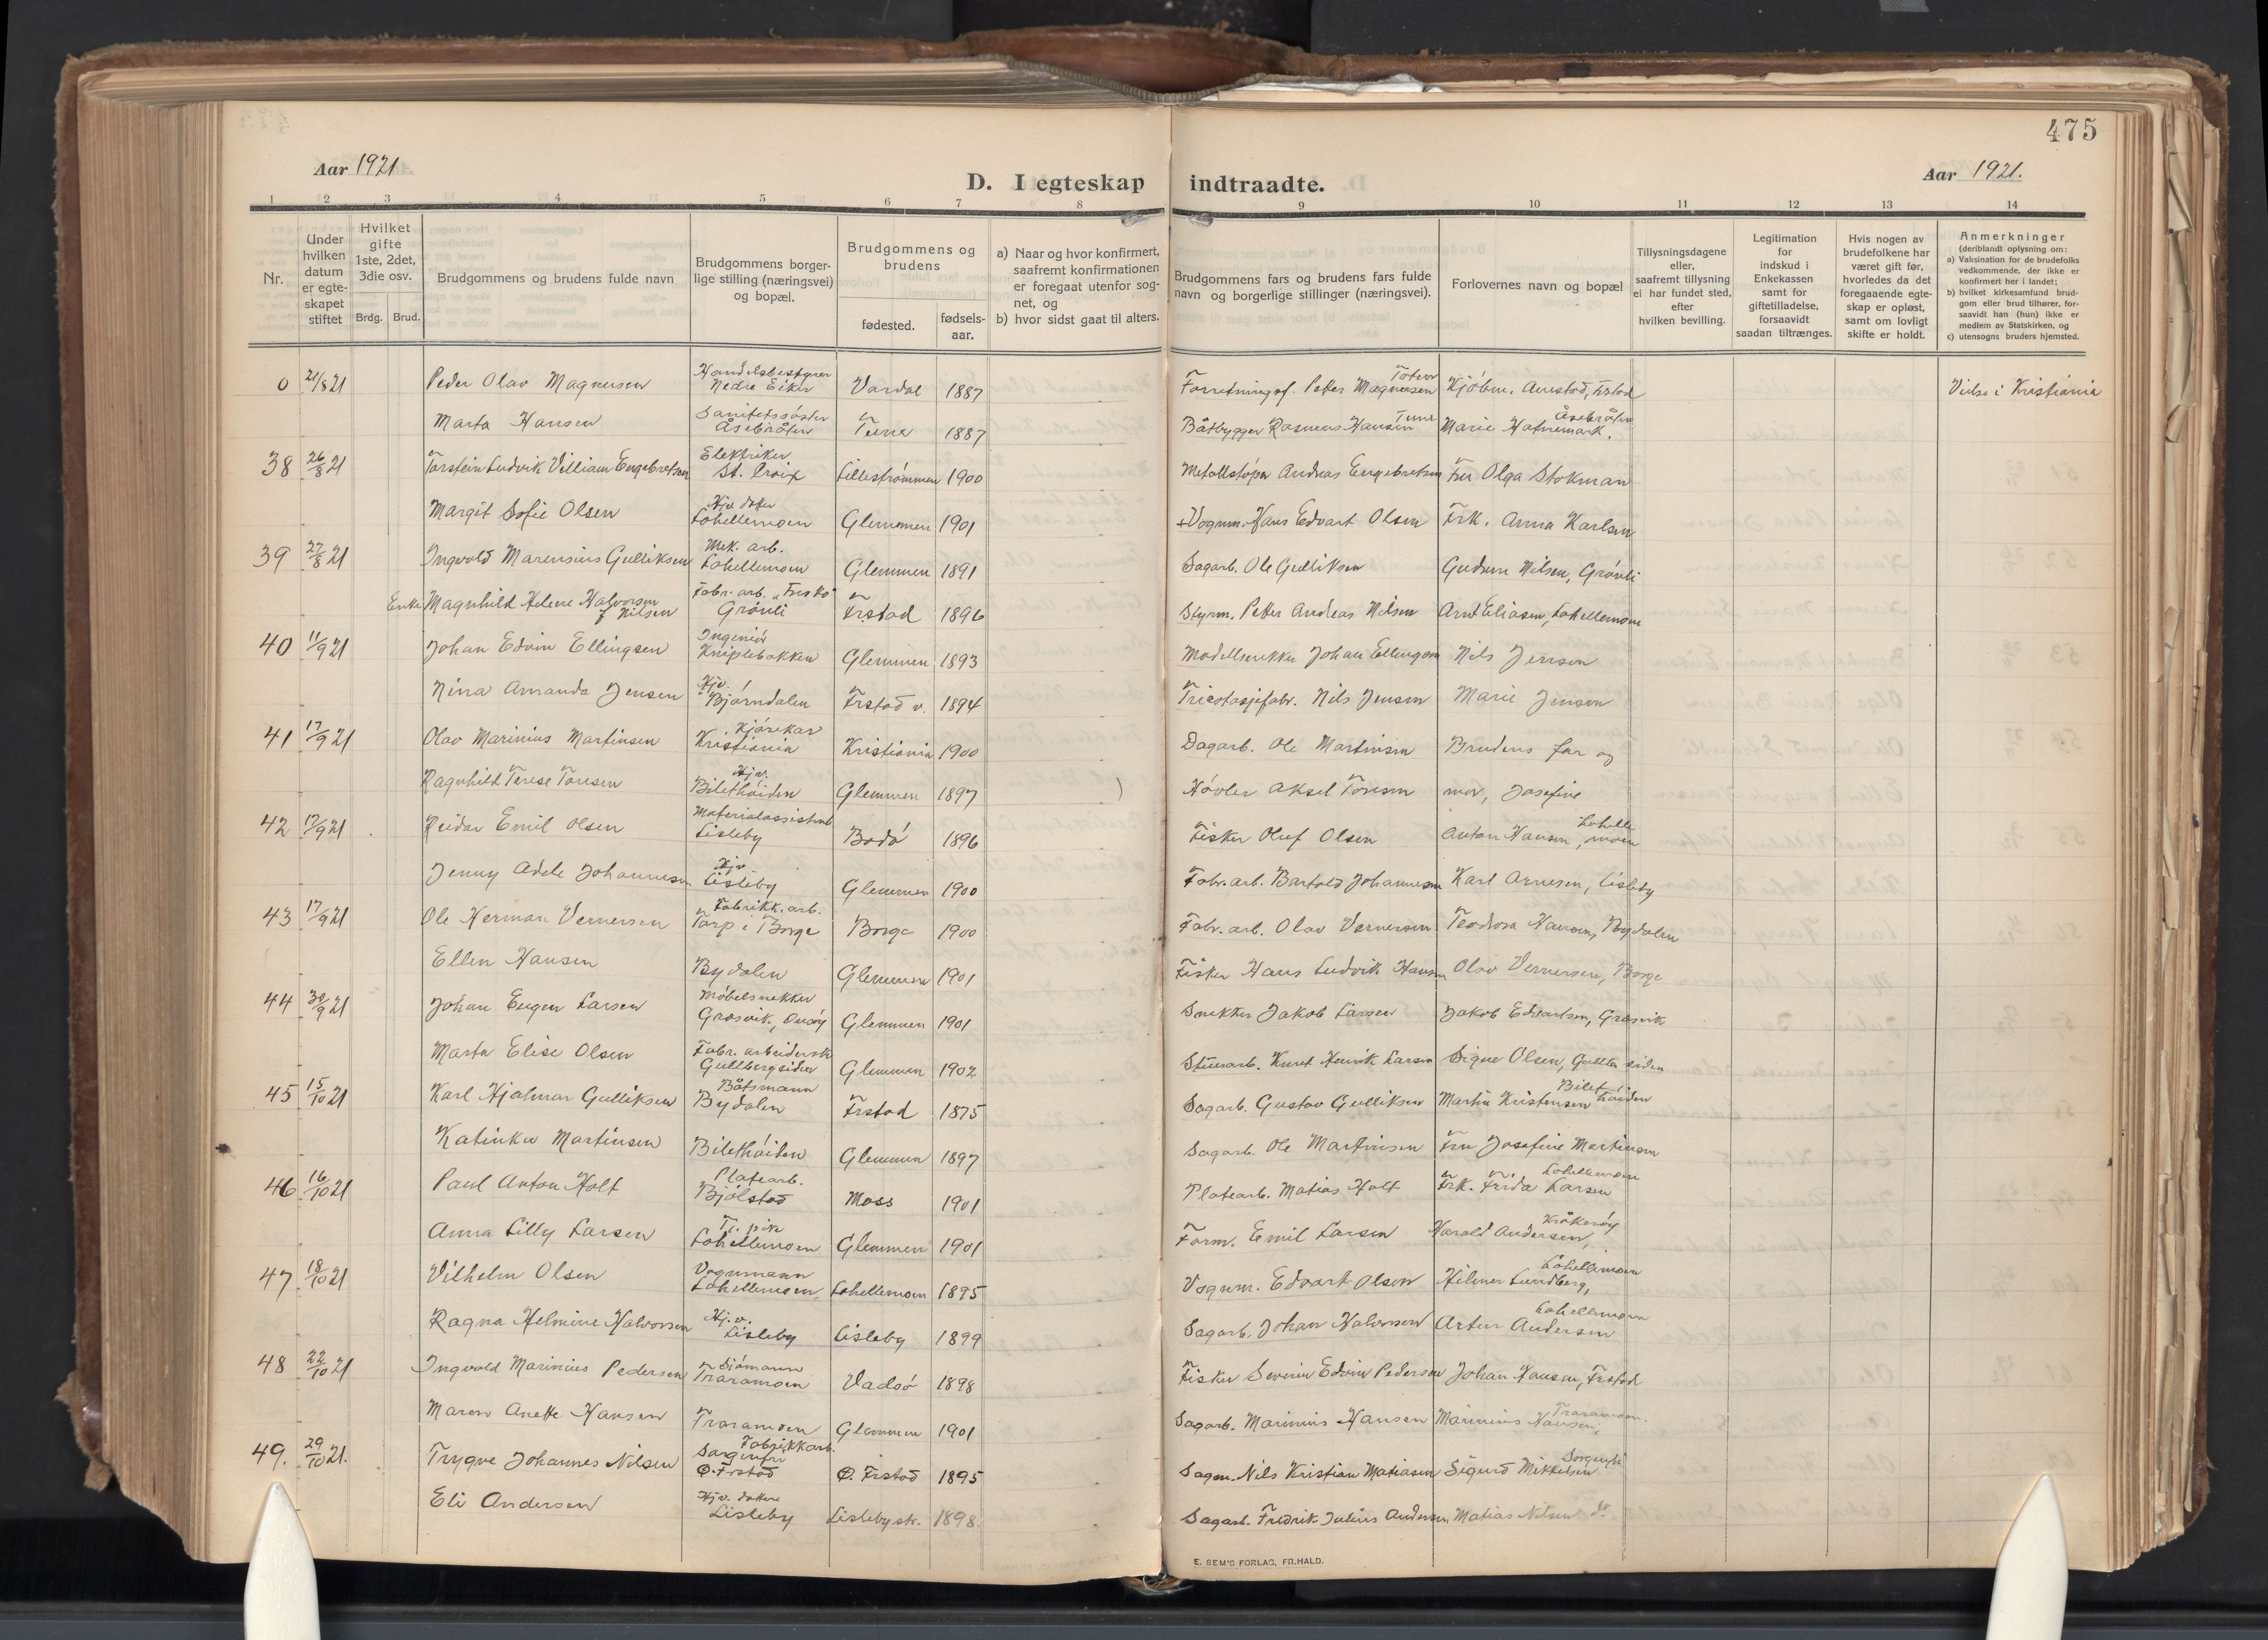 475
Aar 1921
D. I egteskap indtraadte.
Aar 1921.
1 2 3 4 5 6 7 8 9 10 11 12 13 14
Nr.
Under hvilken datum er egte-skapet stiftet
Hvilket gifte 1ste, 2det, 3die osv.
Brdg. Brud.
Brudgommens og brudens fulde navn
Brudgommens borger-lige stilling (næringsvei) og bopæl.
Brudgommens og brudens
fødested. fødsels-aar.
a) Naar og hvor konfirmert, saafremt konfirmationen er foregaat utenfor sog-net, og
b) hvor sidst gaat til alters.
Brudgommens fars og brudens fars fulde navn og borgerlige stillinger (næringsvei).
Forlovernes navn og bopæl
Tillysningsdagene eller, saafremt tillysning ei har fundet sted, efter hvilken bevilling.
Legitimation for indskud i Enkekassen samt for giftetilladelse, forsaavidt saadan tiltrænges.
Hvis nogen av brudefolkene har været gift før, hvorledes da det foregaaende egte-skap er opløst, samt om lovligt skifte er holdt.
Anmerkninger
(deriblandt oplysning om:
a) Vaksination for de brudefolks vedkommende, der ikke er konfirmert her i landet;
b) hvilket kirkesamfund brud-gom eller brud tilhører, for-saavidt han (hun) ikke er medlem av Statskirken, og
c) utensogns bruders hjemsted.
0 21/8 21 Peder Olav Magnusen Handelsbestyrer Nedre Eiker Vardal 1887 Forretningsf. Petter Magnussen Toten Kjöbm. Aunstad, Frstad Vielse i Kristiania
Marta Hansen Sanitetssöster Åsebråten Tune 1887 Båtbygger Rasmus Hansen Tune Marie Hatnemark. Åsebråten
38 26/8 21 Torstein Ludvik Villiam Engebretsen Elektriker St. Croix Lillestrømmen 1900 Metallstöper Andreas Engebretsen Fru Olga Stokman
Margit Sofie Olsen Hjv. dter Lahellemoen Glemmen 1901 +Vognm. Hans Edvart Olsen Frk. Anna Karlsen
39 27/8 21 Ingvald Marensius Gulliksen Mek. arb. Lahellemoen Glemmen 1891 Sagarb. Ole Gulliksen Gudrun Nilsen, Grönli
Enke Magnhild Helene Halvorsen f Nilsen Fabr. arb. "Frisko" Grönli Frstad 1896 Styrm. Petter Andreas Nilsen Arnt Eliasen, Lahellemoen
40 11/9 21 Johan Edvin Ellingsen Ingeniör Kniplebakken Glemmen 1893 Modellsnekker Johan Ellingsen Nils Jensen
Nina Amanda Jensen Hjv. Bjørndalen Frstad v. 1894 Tricotasjefabr. Nils Jensen Marie Jensen
41 17/9 21 Olav Marinius Martinsen Kjörekar Kristiania Kristiania 1900 Dagarb. Ole Martinsen Brudens far og
Ragnhild Terese Toresen Hjv. Bilethöiden Glemmen 1897 Hövler Aksel Toresen mor, Josefine
42 17/9 21 Reidar Emil Olsen Materialassistent Lisleby Bodö 1896 Fisker Oluf Olsen Anton Hansen, Lahellemoen
Jenny Adele Johannesen Hjv Lisleby Glemmen 1900 Fabr. arb. Bartold Johannesen Karl Arnesen, Lisleby
43 17/9 21 Ole Herman Vernersen Fabrikk. arb. Torp i Borge Borge 1900 Fabr. arb. Olav Vernersen Teodora Hansen, Bydalen
Ellen Hansen Bydalen Glemmen 1901 Fisker Hans Ludvik Hansen Olav Vernersen, Borge
44 30/9 21 Johan Eugen Larsen Möbelsnekker Gresvik, Onsöy Glemmen 1901 Snekker Jakob Larsen Jakob Edvartsen, Gresvik
Marta Elise Olsen Fabr. arbeidersk Gullbergsiden Glemmen 1902 Stuerarb. Knut Henrik Larsen Signe Olsen, Gullb. siden
45 15/10 21 Karl Hjalmar Gulliksen Båtsmann Bydalen Frstad 1875 Sagarb. Gustav Gulliksen Martin Kristensen Bilethöiden
Katinka Martinsen Bilethöiden Glemmen 1897 Sagarb. Ole Martinsen Fru Josefine Martinsen
46 16/10 21 Paul Anton Holt Platearb. Bjölstad Moss 1901 Platearb. Matias Holt Frk. Frida Larsen Lahellemoen
Anna Lilly Larsen Tj. pike Lahellemoen Glemmen 1901 Form. Emil Larsen Harald Andersen, Kråkeröy
47 18/10 21 Vilhelm Olsen Vognmann Lahellemoen Lahellemoen 1895 Vognm. Edvart Olsen Hilmer Lundberg, Lahellemoen
Ragna Helmine Halvorsen Hj. v. Lisleby Lisleby 1899 Sagarb. Johan Halvorsen Artur Andersen Lahellemoen
48 22/10 21 Ingvald Marinius Pedersen Sjömann Traramoen Vadsö 1898 Fisker Severin Edvin Pedersen Johan Hansen, Frstad
Maren Anette Hansen Traramoen Glemmen 1901 Sagarb. Marinius Hansen Marinius Hansen, Traramoen.
49. 29/10 21. Trygve Johannes Nilsen Fabrikkarb. Sorgenfri Ø. Frstad Ø. Frstad 1895 Sagm. Nils Kristian Matiasen Sigurd Mikkelsen Sorgenfri
Eli Andersen Hjv. datter Lisleby Lislebystr. 1898. Sagarb. Fredrik Julius Andersen Matias Nilsen do
E. SEM'S FORLAG, FR.HALD.